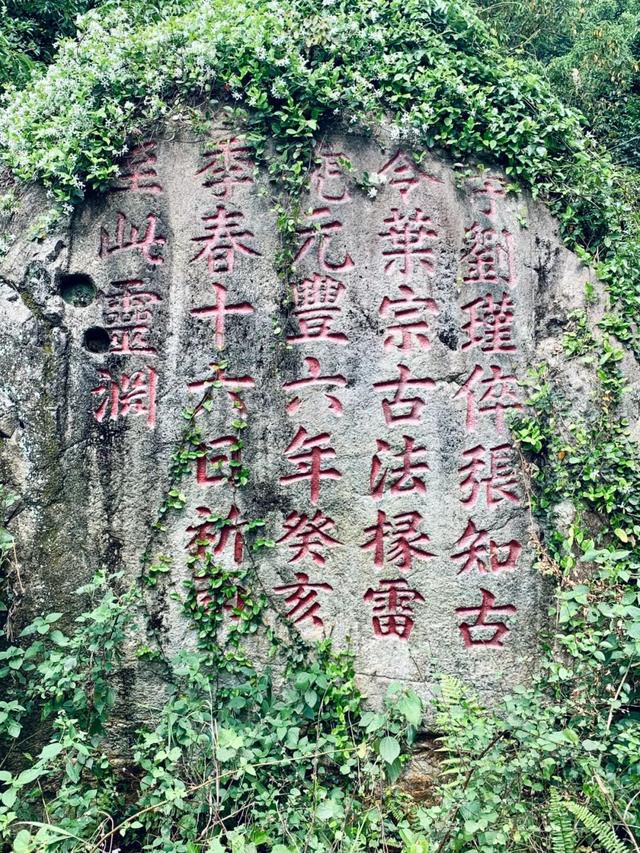 守劉瑾倅張知古
令葉宗古法掾雷
元豐六年癸亥
季春十六日祈雨
至此靈淵